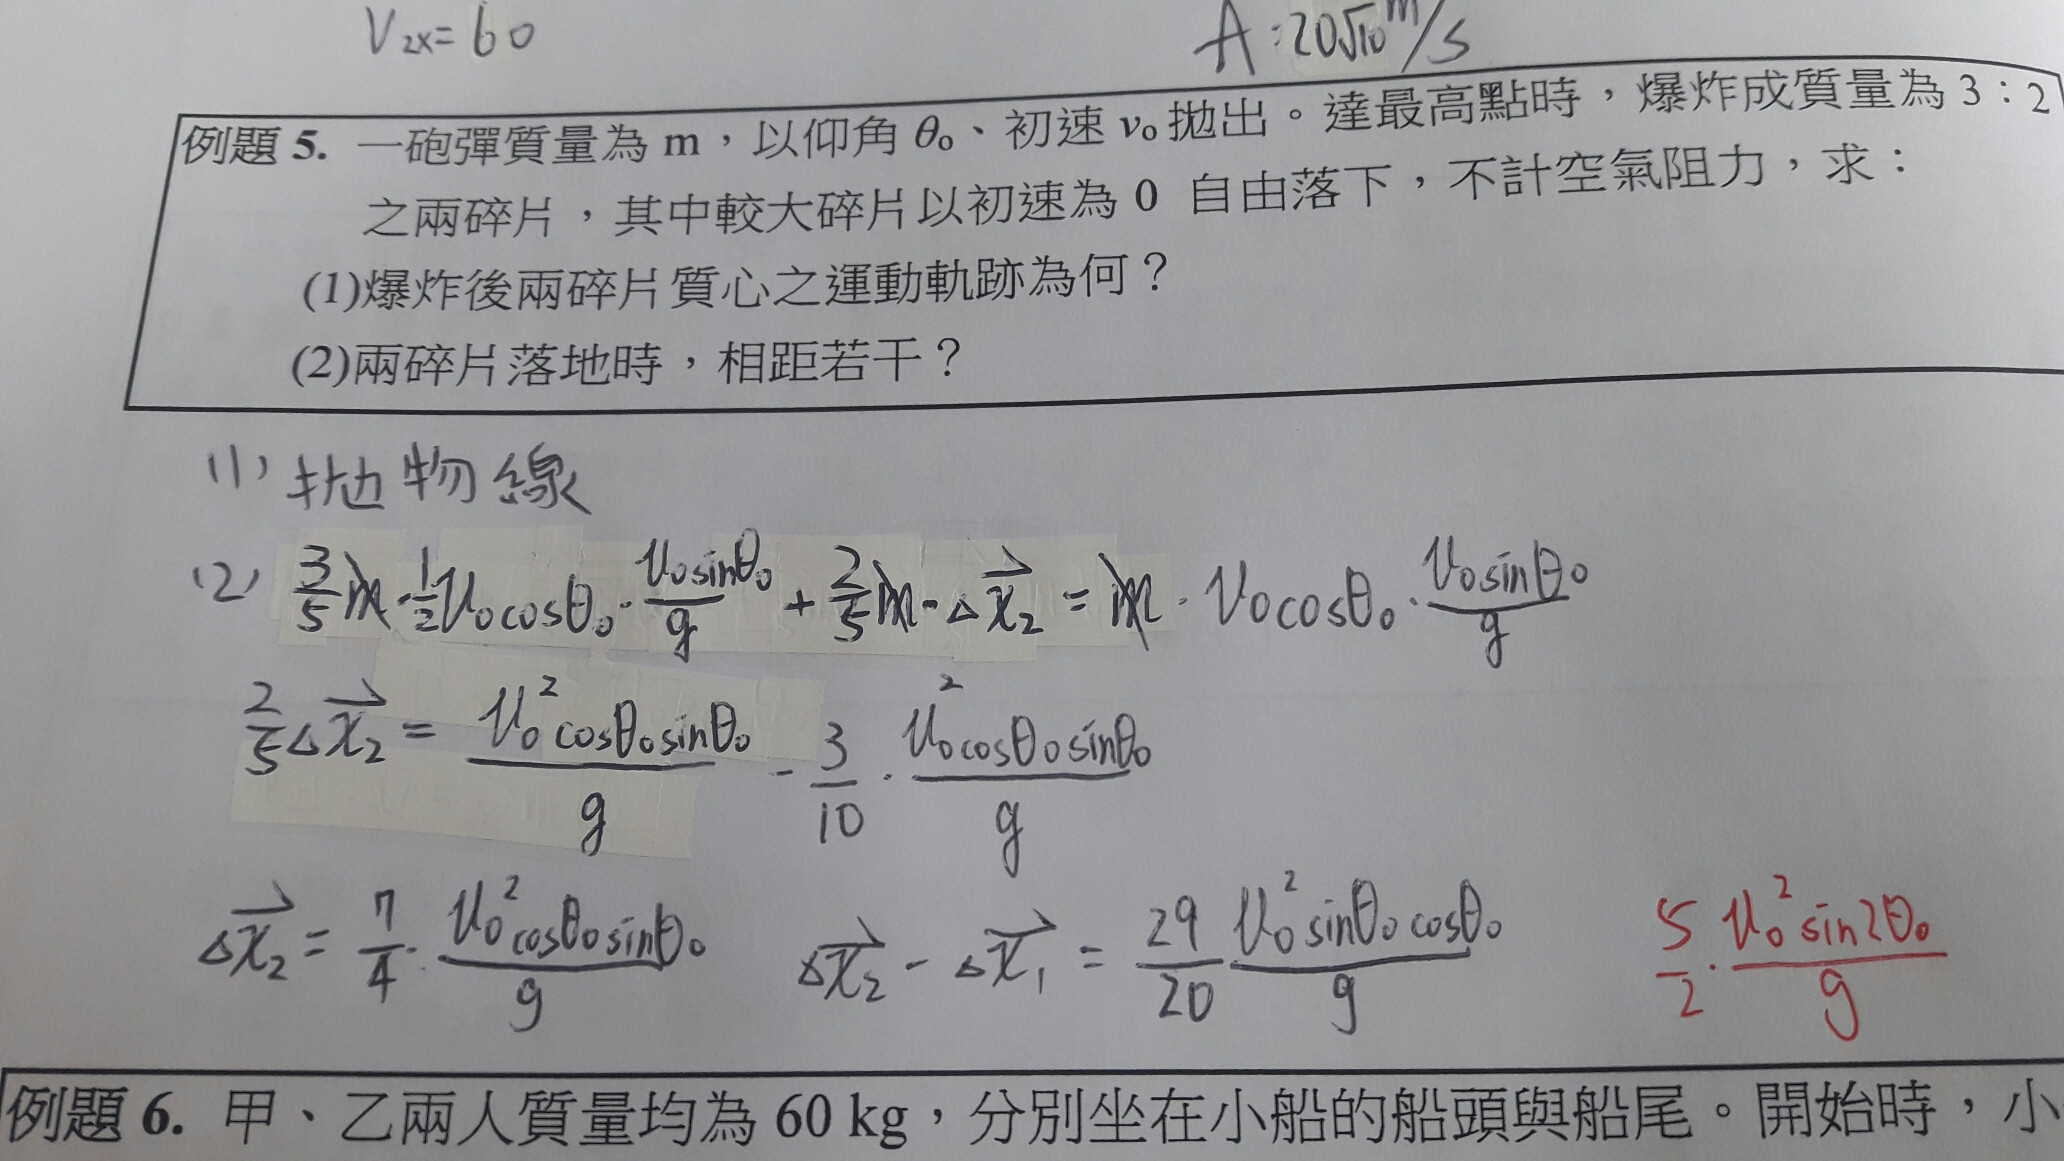 V₂ₓ=60
A:20√10 m/s
例題 5. 一砲彈質量為 m，以仰角 θ₀、初速 v₀ 拋出。達最高點時，爆炸成質量為 3：2
之兩碎片，其中較大碎片以初速為 0 自由落下，不計空氣阻力，求：
(1)爆炸後兩碎片質心之運動軌跡為何？
(2)兩碎片落地時，相距若干？
(1) 拋物線
(2) 3/5 m · 1/2 v₀cosθ₀ · v₀sinθ₀/g + 2/5 m · Δx⃗₂ = m · v₀cosθ₀ · v₀sinθ₀/g
2/5 Δx⃗₂ = v₀²cosθ₀sinθ₀/g - 3/10 · v₀²cosθ₀sinθ₀/g
Δx⃗₂ = 7/4 · v₀²cosθ₀sinθ₀/g Δx⃗₂ - Δx⃗₁ = 29/20 v₀²sinθ₀cosθ₀/g 5/2 · v₀²sin2θ₀/g
例題 6. 甲、乙兩人質量均為 60 kg，分別坐在小船的船頭與船尾。開始時，小